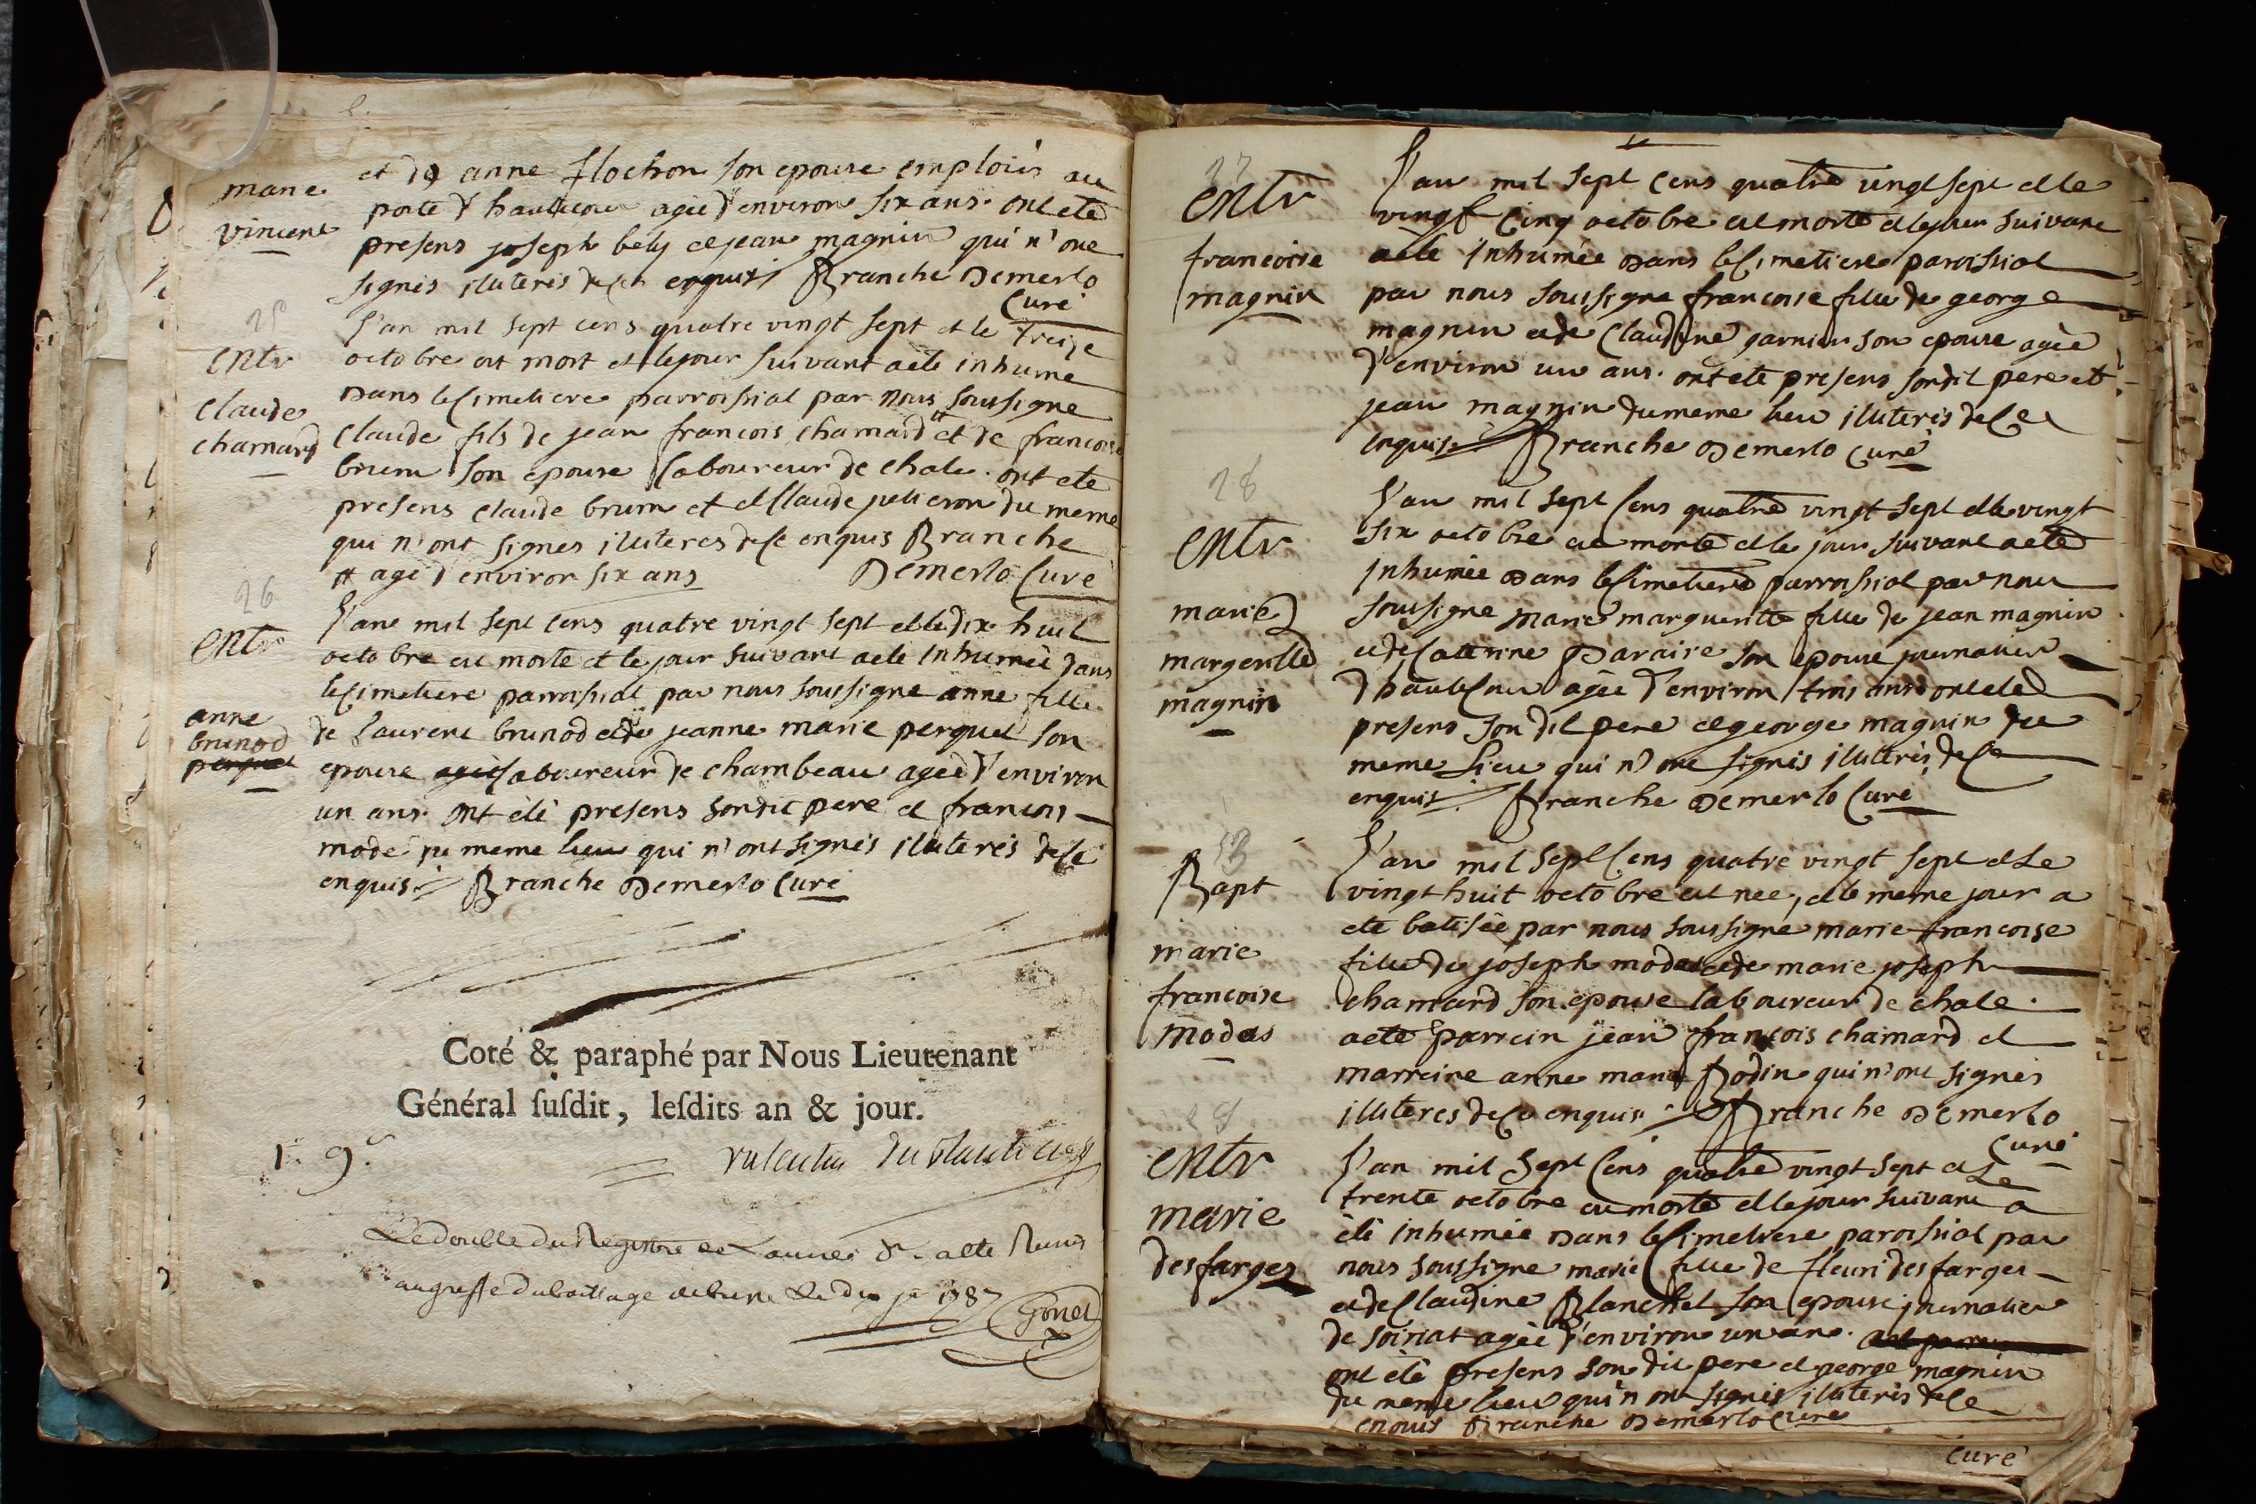 marie
vincent
et de anne flochon son epouse emploiés au
porte d'hautecour agée d'environ six ans. ont ete
presens joseph bely et jean magnin qui n'ont
signés illiteres de ce enquis Branche Demerlo
Curé
25
entr
claude
chamard
L'an mil sept cens quatre vingt sept et le treize
octobre est mort et le jour suivant a ete inhumé
dans le Cimetiere parroissial par nous soussigné
claude fils de jean francois chamard # et de francoise
brum son epouse laboureur de chale. ont ete
presens claude brum et Claude peliceron du meme
qui n'ont signés illiteres de ce enquis Branche
# agé d'environ six ans Demerlo Curé
26
entr
anne
brunod
perquet
L'an mil sept cens quatre vingt sept et le dix huit
octobre est morte et le jour suivant a ete inhumée dans
le Cimetiere parroissial par nous soussigné anne fille
de laurent brunod et de jeanne marie perquet son
epouse agée laboureur de chambeau agée d'environ
un ans. ont été presens son dit pere et francois
modé du meme lieu qui n'ont signés illiterés de ce
enquis Branche Demerlo Curé
Coté & paraphé par Nous Lieutenant
Général susdit, lesdits an & jour.
1. 9.
Le double du Registre de L'année
au greffe du bailliage de le dix 1787
Gonet
27
entr
francoise
magnin
L'an mil sept cens quatre vingt sept et le
vingt Cinq octobre est morte et le jour suivant
a été inhumée dans le Cimetiere paroissial
par nous soussigné francoise fille de george
magnin et de Claudine garnier son epouse agée
d'environ un ans. ont ete presens son dit pere et
jean magnin du meme lieu illiterés de Ce
enquis Branche Demerlo Curé
28
entr
marie
margeritte
magnin
L'an mil sept Cens quatre vingt sept et le vingt
six octobre est morte et le jour suivant a eté
inhumée dans le Cimetiere parroissial par nous
soussigné marie margueritte fille de jean magnin
et de Catterine Daraire son epouse journalier
d'hauteCour agée d'environ trois ans ont eté
presens son dit pere et george magnin du
meme Lieu qui n'ont signés illiterés de Ce
enquis Branche Demerlo Curé
Bapt
marie
francoise
modas
L'an mil sept Cens quatre vingt sept et Le
vingt huit octobre est nee, et le meme jour a
ete batisée par nous soussigné marie francoise
fille de joseph modas et de marie joseph
chamard son epouse laboureur de chale.
a eté parrein jean francois chamard et
marreine anne marie Bodin qui n'ont signés
illiteres de Ce enquis Branche Demerlo
Curé
entr
marie
desfarges
L'an mil sept Cens quatre vingt sept et Le
trente octobre est morte et le jour suivant a
été inhumée dans le Cimetiere paroissial par
nous soussigné marie fille de fleuri desfarges
et de Claudine Blanchet son epouse journalier
de soiriat agée d'environ un an.
ont été presens son dit pere et george magnin
du meme lieu qui n'ont signés illiterés de Ce
enquis Branche Demerlo Curé
Curé